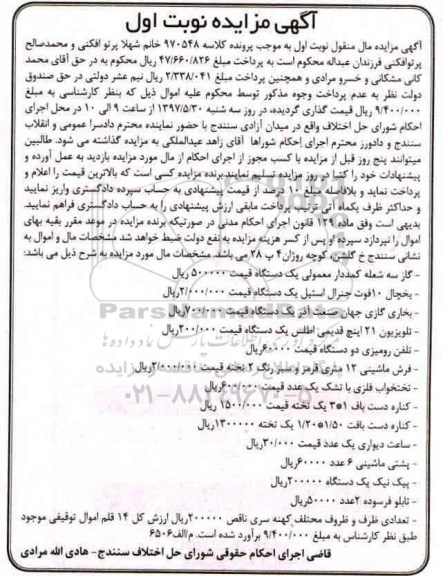 آگهی مزایده نوبت اول
آگهی مزایده مال منقول نوبت اول به موجب پرونده کلاسه ۹۷۰۵۴۸ خانم شهلا پرتو افکنی و محمدصالح
پرتوافکنی فرزندان عبداله محکوم است به پرداخت مبلغ ۴۷/۶۶۰/۸۲۶ ریال محکوم به در حق آقای محمد
کانی مشکانی و خسرو مرادی و همچنین پرداخت مبلغ ۲/۳۳۸/۰۴۱ ریال نیم عشر دولتی در حق صندوق
دولت نظر به عدم پرداخت وجوه مذکور توسط محکوم علیه اموال ذیل که بنظر کارشناسی به مبلغ
۹/۴۰۰/۰۰۰ ریال قیمت گذاری گردیده، در روز سه شنبه ۱۳۹۷/۵/۳۰ از ساعت ۹ الی ۱۰ در محل اجرای
احکام شورای حل اختلاف واقع در میدان آزادی سنندج با حضور نماینده محترم دادسرا عمومی و انقلاب
سنندج و دادورز محترم اجرای احکام شوراها آقای زاهد عبدالملکی به مزایده گذاشته می شود. طالبین
میتوانند پنج روز قبل از مزایده با کسب مجوز از اجرای احکام از مال مورد مزایده بازدید به عمل آورده و
پیشنهادات خود را کتبا در روز مزایده تسلیم نمایند.برنده مزایده کسی است که بالاترین قیمت را اعلام و
پرداخت نماید و بلافاصله مبلغ ۱۰ درصد از قیمت پیشنهادی به حساب سپرده دادگستری واریز نمایید
و حداکثر ظرف یکماه این ترتیب پرداخت مابقی ارزش پیشنهادی را به حساب دادگستری فراهم نمایید.
بدیهی است وفق ماده ۱۲۹ قانون اجرای احکام مدنی در صورتیکه برنده مزایده در موعد مقرر بقیه بهای
اموال را نپردازد سپرده او پس از کسر هزینه مزایده به نفع دولت ضبط خواهد شد مشخصات مال و اموال به
نشانی سنندج خ گلشن، کوچه روژان۴ پ ۲۸ می باشد. مشخصات مال مورد مزایده به شرح ذیل می باشد:
- گاز سه شعله کمددار معمولی یک دستگاه قیمت ۵۰۰۰۰۰ ریال
- یخچال ۱۰فوت جنرال استیل یک دستگاه قیمت ۲/۰۰۰/۰۰۰ریال
- بخاری گازی جهان صنعت آذر یک دستگاه قیمت ۷۰۰/۰۰۰ریال
- تلویزیون ۲۱ اینچ قدیمی اطلس یک دستگاه قیمت ۲۰۰/۰۰۰ریال
- تلفن رومیزی دو دستگاه قیمت ۶۰۰۰۰ریال
- فرش ماشینی ۱۲ متری قرمز و سبز رنگ ۲ تخته قیمت ۲/۰۰۰/۰۰۰ریال
- تختخواب فلزی با تشک یک عدد قیمت ۶۰۰/۰۰۰ریال
- کناره دست باف ۱*۳ یک تخته قیمت ۱/۵۰۰/۰۰۰ ریال
- کناره دست بافت ۱/۵۰*۱/۲۰ یک تخته ۱۳۰۰۰۰۰ریال
- ساعت دیواری یک عدد قیمت ۳۰/۰۰۰ریال
- پشتی ماشینی ۶ عدد ۶۰۰۰۰ریال
- پیک نیک یک دستگاه ۲۰۰۰۰۰ریال
- تابلو فرسوده ۲عدد ۵۰۰۰۰ریال
- تعدادی ظرف و ظروف مختلف کهنه سری ناقص ۲۰۰۰۰۰ریال ارزش کل ۱۴ قلم اموال توقیفی موجود
طبق نظر کارشناس به مبلغ ۹/۴۰۰/۰۰۰ برآورده شده است. م/الف۶۵۰۶
قاضی اجرای احکام حقوقی شورای حل اختلاف سنندج- هادی الله مرادی
ParsNamadData
۰۲۱-۸۸۳۴۹۶۷۰-۵